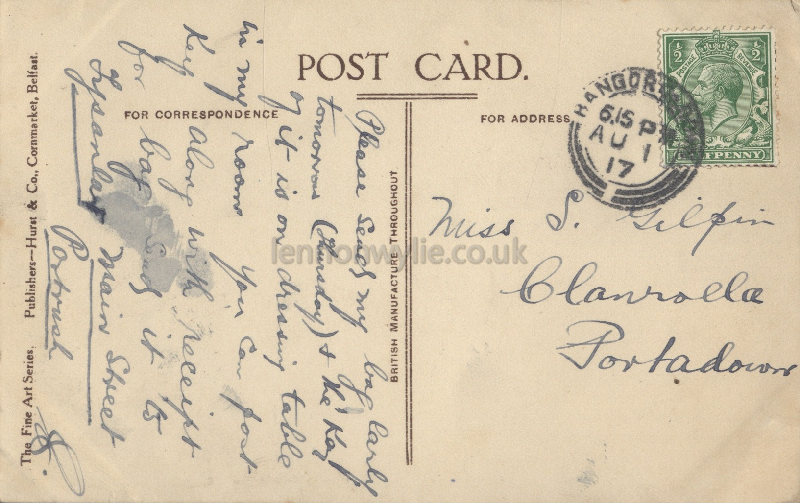 POST CARD.
FOR CORRESPONDENCE
FOR ADDRESS
Please send my bag early
tomorrow (Thursday) & the key
of it is on dressing table
in my room You can post
key along with receipt
for bag Send it to
Main Street
Portrush
BRITISH MANUFACTURE THROUGHOUT
The Fine Art Series. Publishers—Hurst & Co., Cornmarket, Belfast.
Miss S. Gilpin
Clanrolla
Portadown
BANGOR
6.15 PM
AU 1
17
½ ½
POSTAGE
HALFPENNY
lennonwylie.co.uk